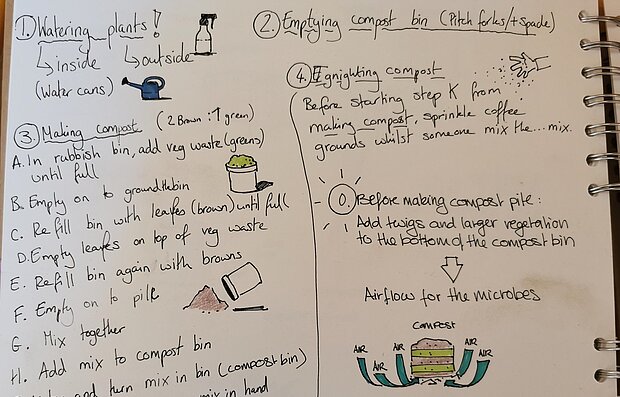 1. Watering plants!
↳inside ↳outside
(Water cans)
3 Making compost (2 Brown : 1 green)
A. In rubbish bin, add veg waste (greens)
until full
B. Empty on to ground
C. Refill bin with leafes (brown) until full
D. Empty leafes on top of veg waste
E. Refill bin again with browns
F. Empty on to pile
G. Mix together
H. Add mix to compost bin
and turn mix in bin (compost bin)
mix in hand
2. Emptying compost bin (Pitch forks/+spade)
4. Egnighting compost
Before starting step K from
making compost, sprinkle coffee
grounds whilst someone mix the...mix.
0. Before making compost pile:
Add twigs and larger vegetation
to the bottom of the compost bin
Airflow for the microbes
COMPOST
AIR AIR AIR AIR